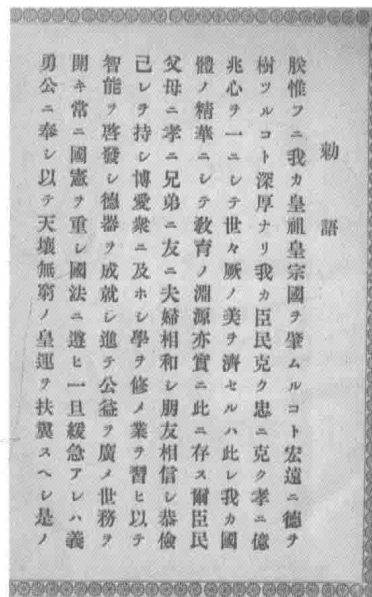 勅語
朕惟フニ我カ皇祖皇宗國ヲ肇ムルコト宏遠ニ德ヲ
樹ツルコト深厚ナリ我カ臣民克ク忠ニ克ク孝ニ億
兆心ヲ一ニシテ世々厥ノ美ヲ濟セルハ此レ我カ國
體ノ精華ニシテ敎育ノ淵源亦實ニ此ニ存ス爾臣民
父母ニ孝ニ兄弟ニ友ニ夫婦相和シ朋友相信シ恭儉
己レヲ持シ博愛衆ニ及ホシ學ヲ修メ業ヲ習ヒ以テ
智能ヲ啓發シ德器ヲ成就シ進テ公益ヲ廣メ世務ヲ
開キ常ニ國憲ヲ重シ國法ニ遵ヒ一旦緩急アレハ義
勇公ニ奉シ以テ天壤無窮ノ皇運ヲ扶翼スヘシ是ノ